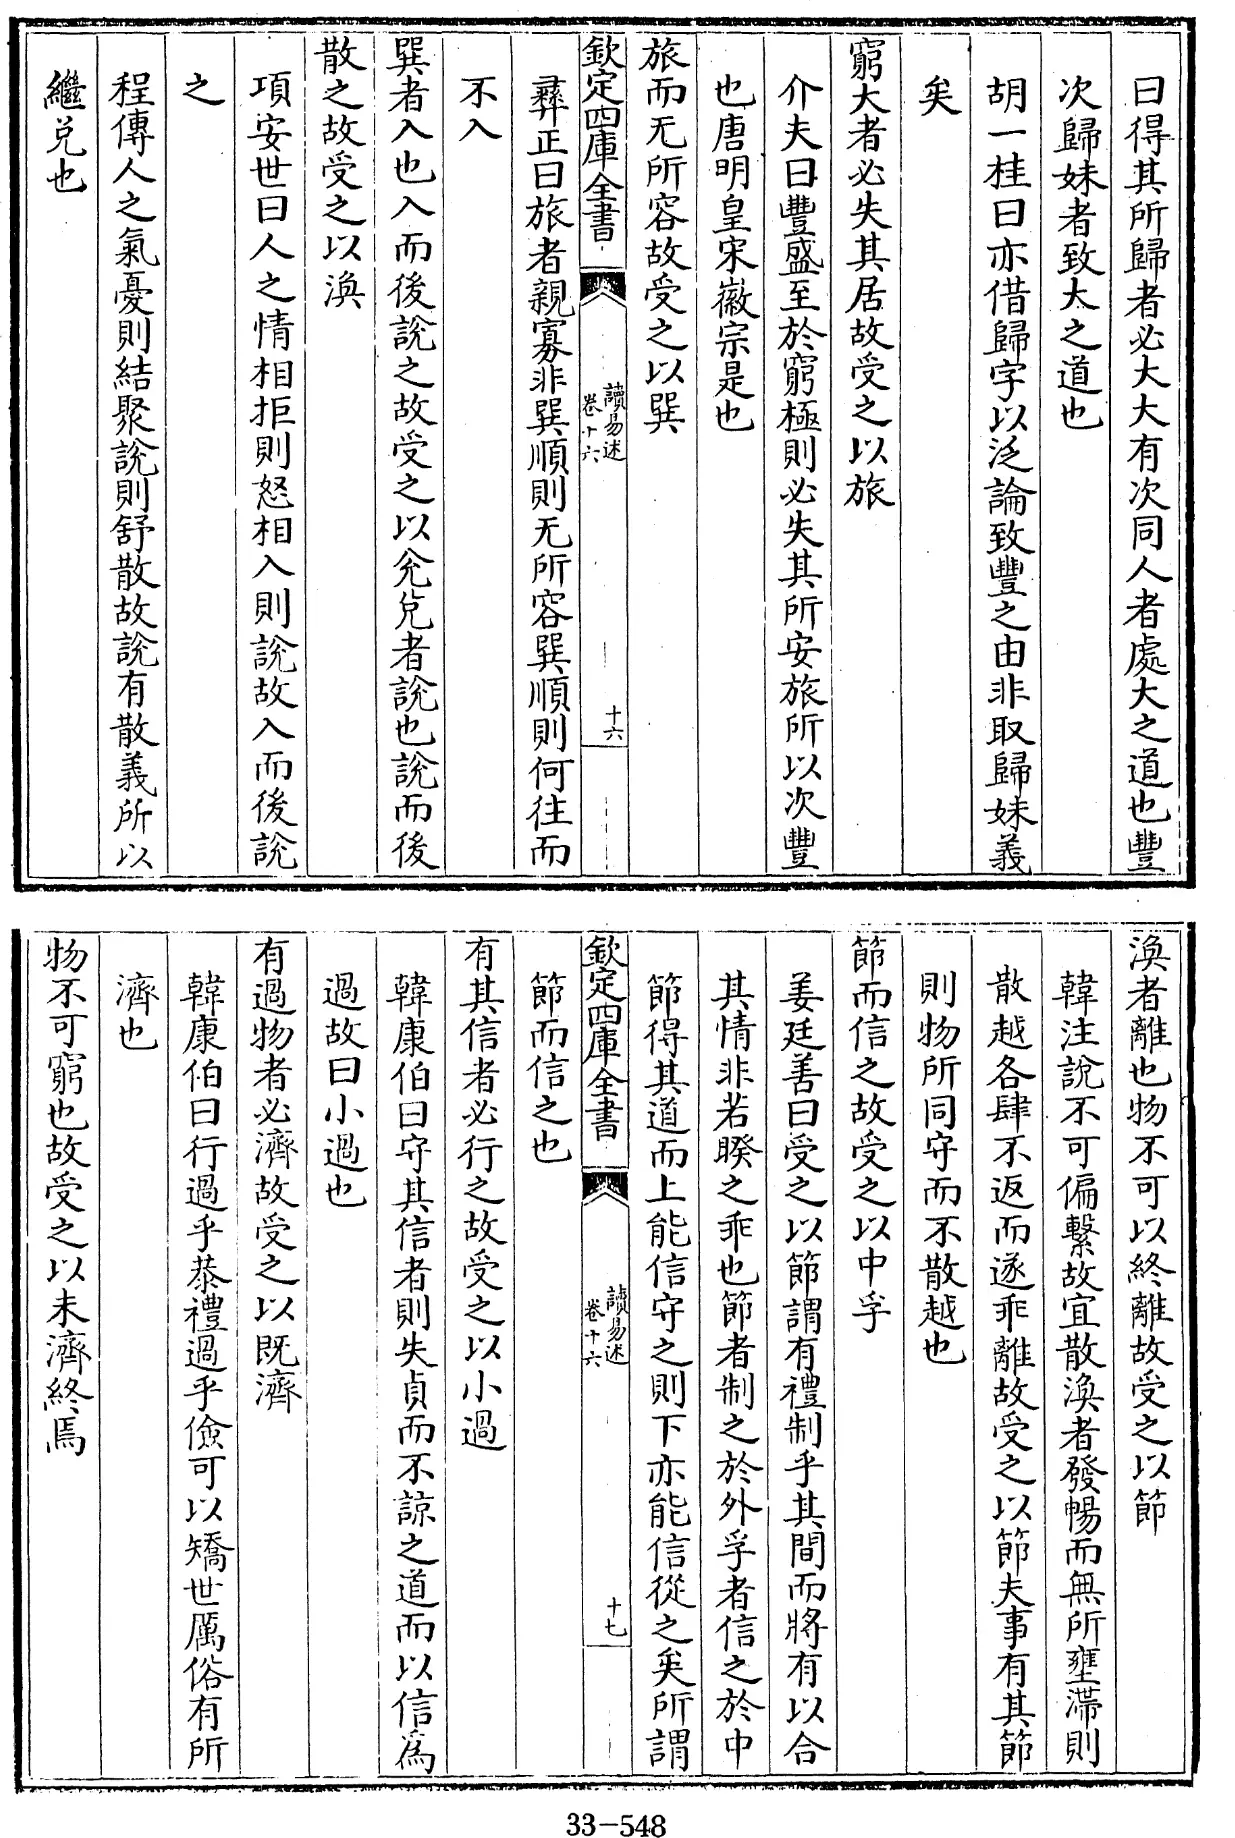 曰得其所歸者必大大有次同人者處大之道也豐
次歸妹者致大之道也
胡一桂曰亦借歸字以泛論致豐之由非取歸妹義
矣
窮大者必失其居故受之以旅
介夫曰豐盛至於窮極則必失其所安旅所以次豐
也唐明皇宋徽宗是也
旅而无所容故受之以巽
欽定四庫全書
讀易述
卷十六
十六
彞正曰旅者親寡非巽順則无所容巽順則何往而
不入
巽者入也入而後說之故受之以兊兊者說也說而後
散之故受之以渙
項安世曰人之情相拒則怒相入則說故入而後說
之
程傳人之氣憂則結聚說則舒散故說有散義所以
繼兌也
渙者離也物不可以終離故受之以節
韓注說不可偏繫故宜散渙者發暢而無所壅滯則
散越各肆不返而遂乖離故受之以節夫事有其節
則物所同守而不散越也
節而信之故受之以中孚
姜廷善曰受之以節謂有禮制乎其間而將有以合
其情非若睽之乖也節者制之於外孚者信之於中
節得其道而上能信守之則下亦能信從之矣所謂
欽定四庫全書
讀易述
卷十六
十七
節而信之也
有其信者必行之故受之以小過
韓康伯曰守其信者則失貞而不諒之道而以信為
過故曰小過也
有過物者必濟故受之以既濟
韓康伯曰行過乎恭禮過乎儉可以矯世厲俗有所
濟也
物不可窮也故受之以未濟終焉
33-548